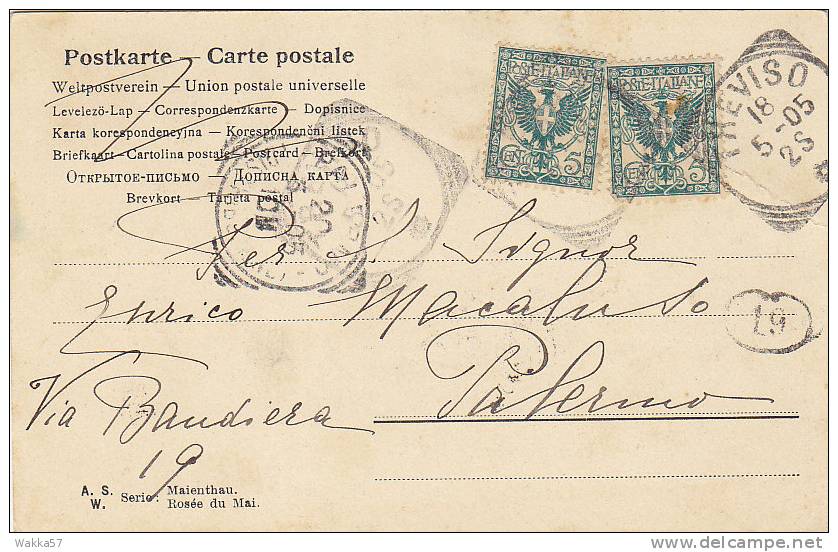 Postkarte — Carte postale
Weltpostverein — Union postale universelle
Levelező-Lap — Correspondenzkarte — Dopisnice
Karta korespondencyjna — Korespondenční listek
Briefkaart — Cartolina postale — Postcard — Brefkort
Открытое-письмо — Дописна карта
Brevkort — Tarjeta postal
POSTE ITALIANE
CENT 5
POSTE ITALIANE
CENT 5
TREVISO
18
5 - 05
2S
Per il Signor
Enrico Macaluso
19
Palermo
Via Bandiera
19
A. S. W. Serie: Maienthau.
Rosée du Mai.
Wakka57
delcampe.net